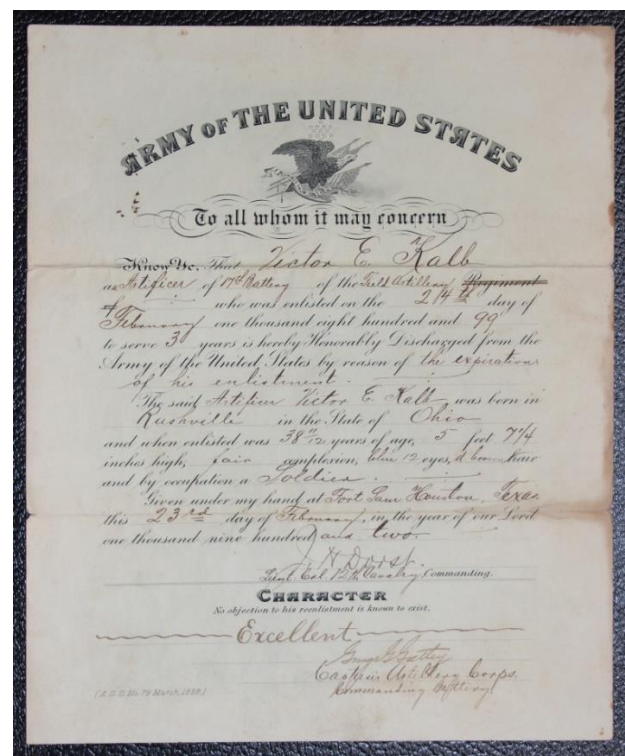 ARMY OF THE UNITED STATES
To all whom it may concern
Know Ye, That Victor E Kalb
an Artificer of 17th Battery of the Field Artillery Regiment
of who was enlisted on the 24th day of
February one thousand eight hundred and 99
to serve 3 years is hereby Honorably Discharged from the
Army of the United States by reason of the expiration
of his enlistment.
The said Artificer Victor E. Kalb was born in
Rushville in the State of Ohio
and when enlisted was 38 years of age, 5 feet 7 1/4
inches high, fair complexion, blue 12 eyes, d. brown hair
and by occupation a Soldier.
Given under my hand at Fort Sam Houston, Texas
this 23rd day of February, in the year of our Lord
one thousand nine hundred and two.
J H Dorst
Lieut. Col. 12th Cavalry Commanding.
CHARACTER
No objection to his reenlistment is known to exist.
Excellent
Captain Artillery Corps.
Commanding Battery